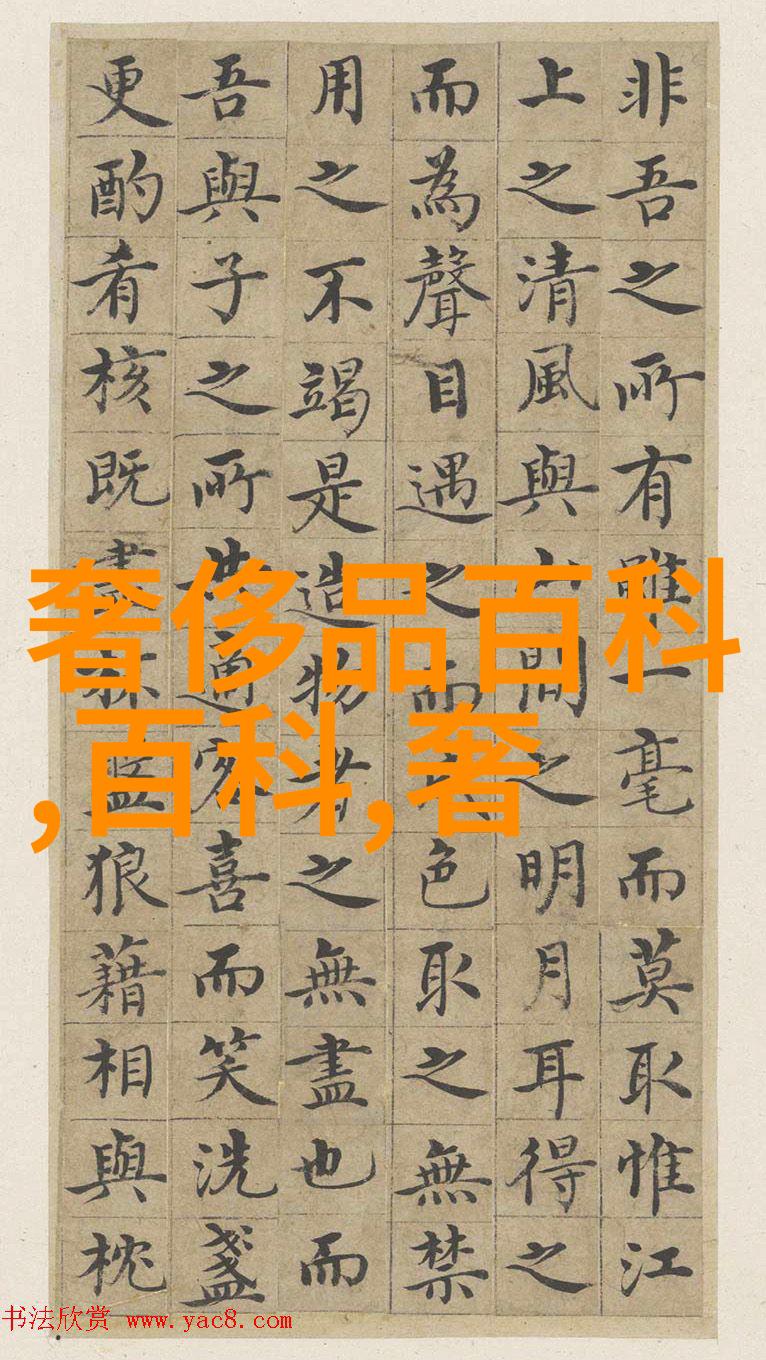 非吾之所有雖一毫而莫取惟江
上之清風與山間之明月耳得之
而為聲目遇之而色取之無禁
用之不竭是造物者之無盡也而
吾與子之所共適客喜而笑洗盞
更酌肴核既盡杯盤狼藉相與枕
奢侈品百科
,百科,奢
书法欣赏 www.yac8.com